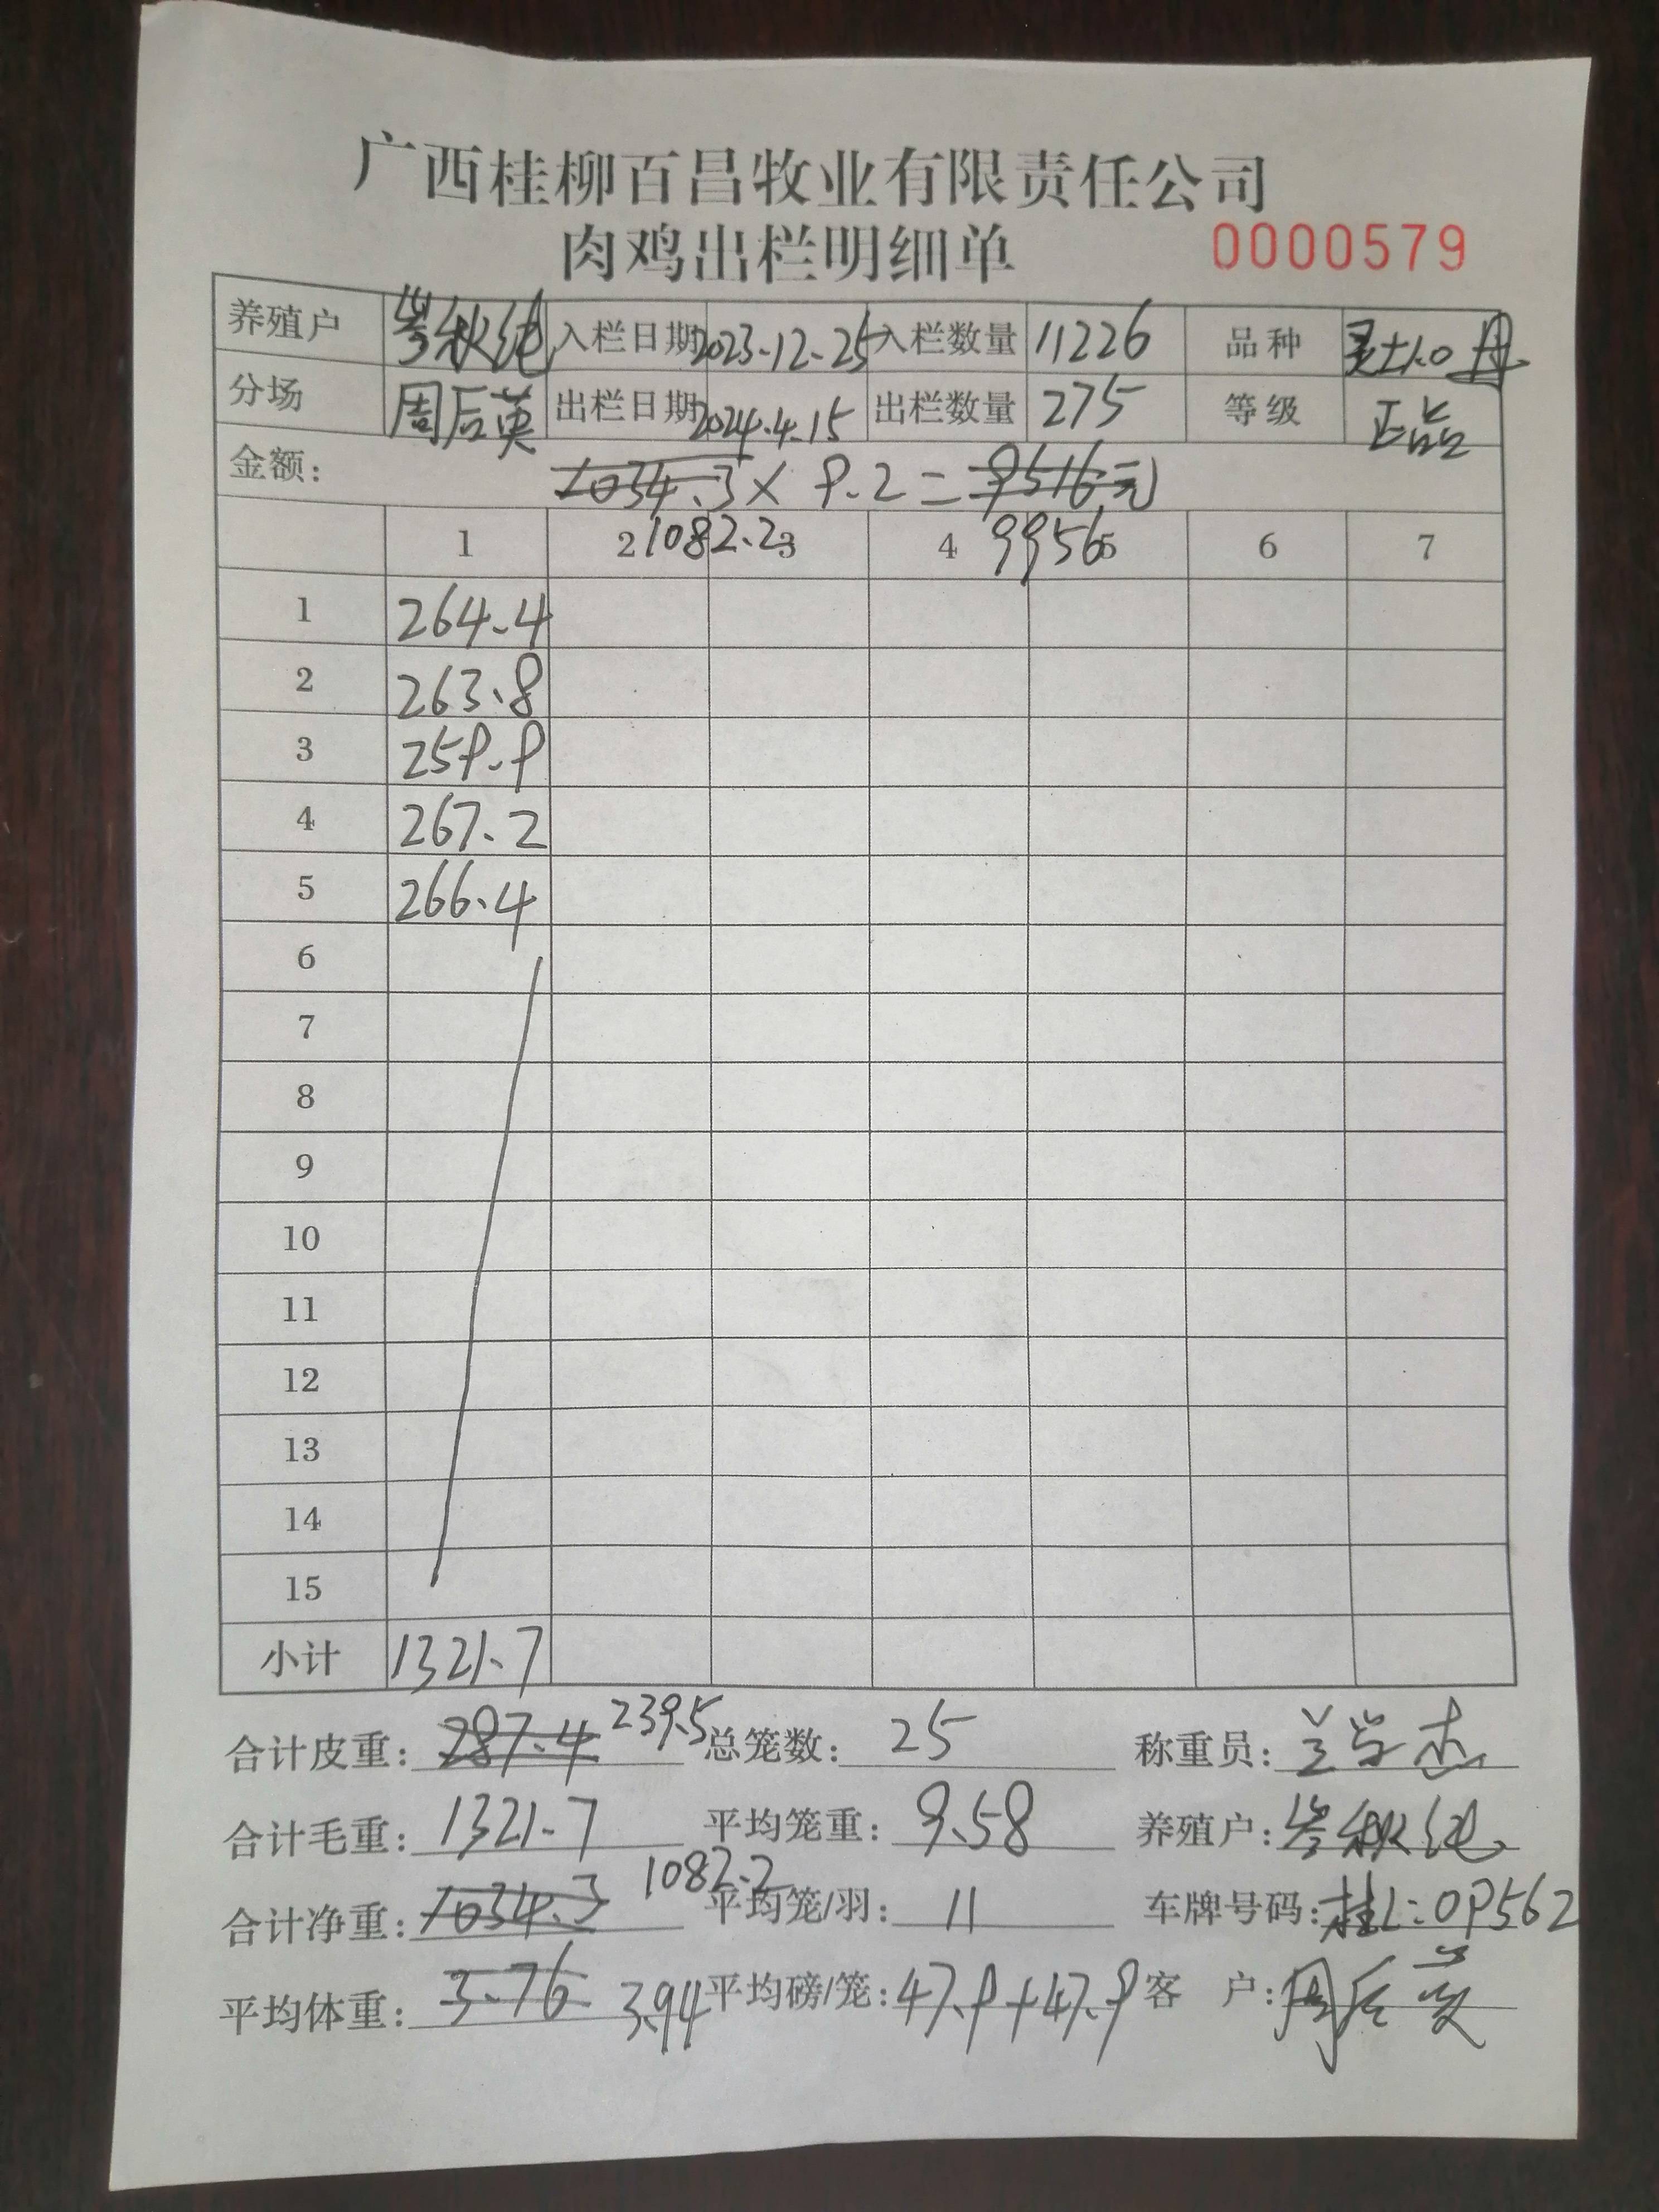 广西桂柳百昌牧业有限责任公司
肉鸡出栏明细单 0000579
养殖户 岑秋纯 入栏日期 2023.12.25 入栏数量 11226 品种
分场 周后英 出栏日期 2024.4.15 出栏数量 275 等级 正品
金额： 1034.3 × 9.2 = 9516元
1 2 1082.2 3 4 9956 5 6 7
1 264.4
2 263.8
3 259.9
4 267.2
5 266.4
6
7
8
9
10
11
12
13
14
15
小计 1321.7
合计皮重： 287.4 239.5 总笼数： 25 称重员： 兰学杰
合计毛重： 1321.7 平均笼重： 9.58 养殖户： 岑秋纯
合计净重： 1034.3 1082.2 平均笼/羽： 11 车牌号码： 桂L:0P562
平均体重： 3.76 3.94 平均磅/笼： 47.9+47.9 客 户： 周后英